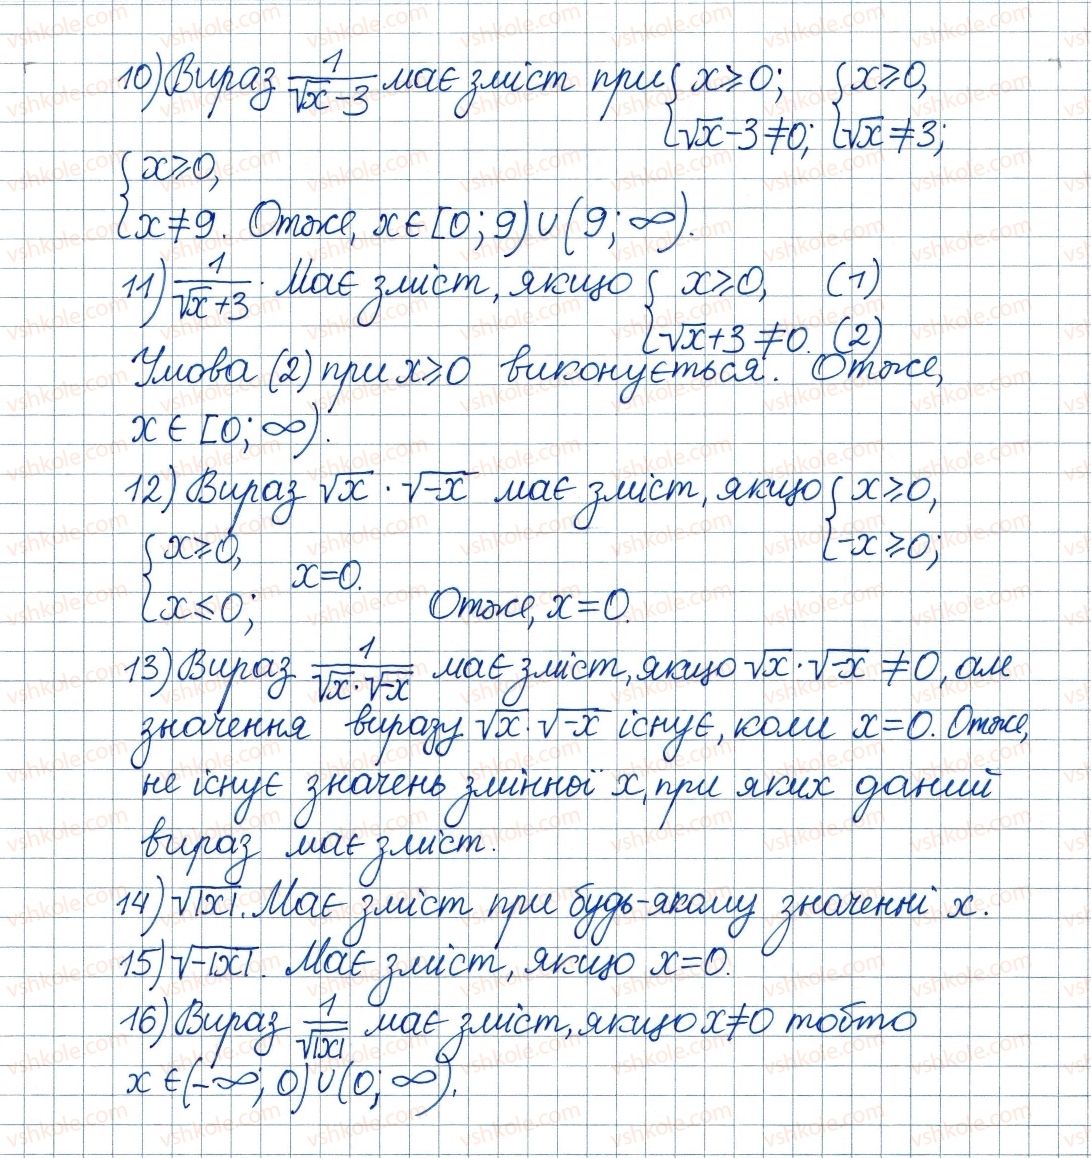 10) Вираз 1/(√x − 3) має зміст при { x ≥ 0; √x − 3 ≠ 0; { x ≥ 0, √x ≠ 3;
{ x ≥ 0, x ≠ 9. Отже, x ∈ [0; 9) ∪ (9; ∞).
11) 1/(√x + 3). Має зміст, якщо { x ≥ 0, (1) √x + 3 ≠ 0. (2)
Умова (2) при x ≥ 0 виконується. Отже,
x ∈ [0; ∞).
12) Вираз √x · √−x має зміст, якщо { x ≥ 0, −x ≥ 0;
{ x ≥ 0, x ≤ 0; x = 0. Отже, x = 0.
13) Вираз 1/(√x · √−x) має зміст, якщо √x · √−x ≠ 0, але
значення виразу √x · √−x існує, коли x = 0. Отже,
не існує значень змінної x, при яких даний
вираз має зміст.
14) √|x|. Має зміст при будь-якому значенні x.
15) √−|x|. Має зміст, якщо x = 0.
16) Вираз 1/√|x| має зміст, якщо x ≠ 0 тобто
x ∈ (−∞; 0) ∪ (0; ∞).
vshkole.com